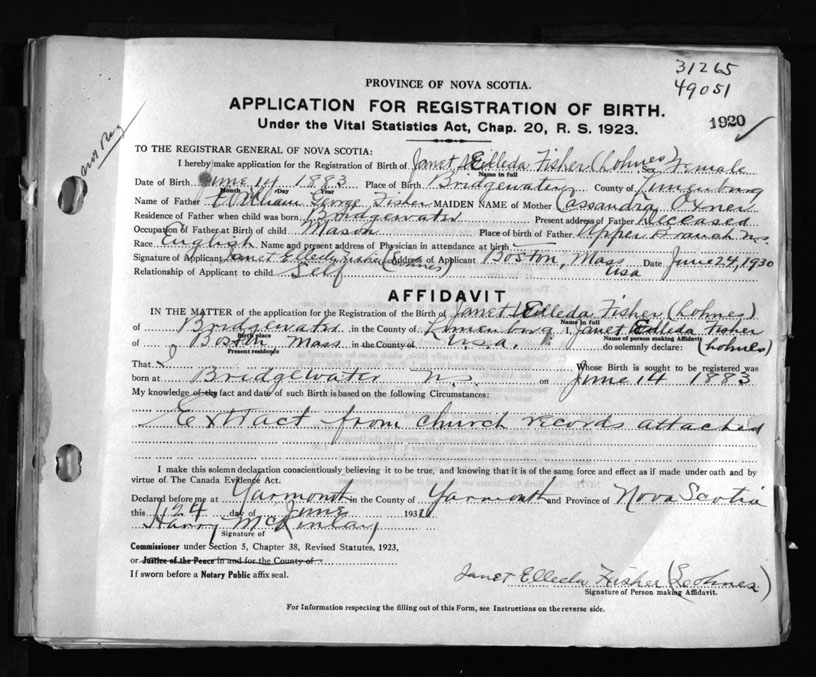 31265
49051
PROVINCE OF NOVA SCOTIA.
APPLICATION FOR REGISTRATION OF BIRTH.
1920
Under the Vital Statistics Act, Chap. 20, R. S. 1923.
TO THE REGISTRAR GENERAL OF NOVA SCOTIA:
I hereby make application for the Registration of Birth of Janet Elleda Fisher (Lohnes) Sex Female
Name in full
Date of Birth June 14 1883 Place of Birth Bridgewater County of Lunenburg
Month Day Year
Name of Father William George Fisher MAIDEN NAME of Mother Cassandra Oxner
Residence of Father when child was born Bridgewater Present address of Father Deceased
Occupation of Father at Birth of child Mason Place of birth of Father Upper Branch N.S.
Race English Name and present address of Physician in attendance at birth —
Signature of Applicant Janet Elleda Fisher (Lohnes) Address of Applicant Boston, Mass USA Date June 24, 1930
Relationship of Applicant to child Self
AFFIDAVIT
IN THE MATTER of the application for the Registration of the Birth of Janet Elleda Fisher (Lohnes)
Name in full
of Bridgewater in the County of Lunenburg I, Janet Elleda Fisher
Birth place Name of person making Affidavit
of Boston Mass in the County of U.S.A. do solemnly declare: (Lohnes)
Present residence
That I Whose Birth is sought to be registered was
born at Bridgewater N.S. on June 14 1883
My knowledge of the fact and date of such Birth is based on the following Circumstances:
Extract from church records attached
I make this solemn declaration conscientiously believing it to be true, and knowing that it is of the same force and effect as if made under oath and by
virtue of The Canada Evidence Act.
Declared before me at Yarmouth in the County of Yarmouth and Province of Nova Scotia
this 24 day of June 193
Harry McKinlay
Signature of
Commissioner under Section 5, Chapter 38, Revised Statutes, 1923,
or Justice of the Peace in and for the County of
If sworn before a Notary Public affix seal.
Janet Elleda Fisher (Leohnes)
Signature of Person making Affidavit.
For Information respecting the filling out of this Form, see Instructions on the reverse side.